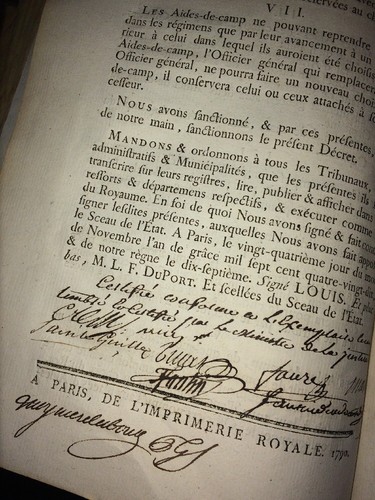 VII.
Les Aides-de-camp ne pouvant reprendre
dans les régimens que par leur avancement à un
rieur à celui dans lequel ils auroient été choisis
Aides-de-camp, l'Officier général qui remplacera
Officier général, ne pourra faire un nouveau choix
de-camp, il conservera celui ou ceux attachés à
cesseur.
Nous avons sanctionné, & par ces présentes,
de notre main, sanctionnons le présent Décret.
Mandons & ordonnons à tous les Tribunaux,
administratifs & Municipalités, que les présentes ils
transcrire sur leurs registres, lire, publier & afficher dans
ressorts & départemens respectifs, & exécuter comme
du Royaume. En foi de quoi Nous avons signé & fait
signer lesdites présentes, auxquelles Nous avons fait
le Sceau de l'État. A Paris, le vingt-quatrième jour du mois
de Novembre l'an de grâce mil sept cent quatre-vingt-dix,
& de notre règne le dix-septième. Signé LOUIS. Et plus
bas, M. L. F. DuPort. Et scellées du Sceau de l'État.
Certifié conforme à l'Exemplaire
certifié par le ministre de la justice
A PARIS, DE L'IMPRIMERIE ROYALE. 1790.